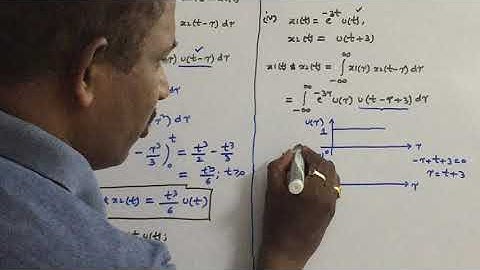 x2(t-τ)dτ
u(t-τ)dτ
τ²)dτ
- τ³/3)₀ᵗ = t³/2 - t³/3
= t³/6; t≥0
x2(t) = t³/6 u(t)
t u(t);
(iv) x1(t) = e^-3t u(t),
x2(t) = u(t+3)
x1(t) * x2(t) = ∫_-∞^∞ x1(τ) x2(t-τ)dτ
= ∫_-∞^∞ e^-3τ u(τ) u(t-τ+3)dτ
u(τ)
1
0
τ
-τ+t+3=0
τ=t+3
τ